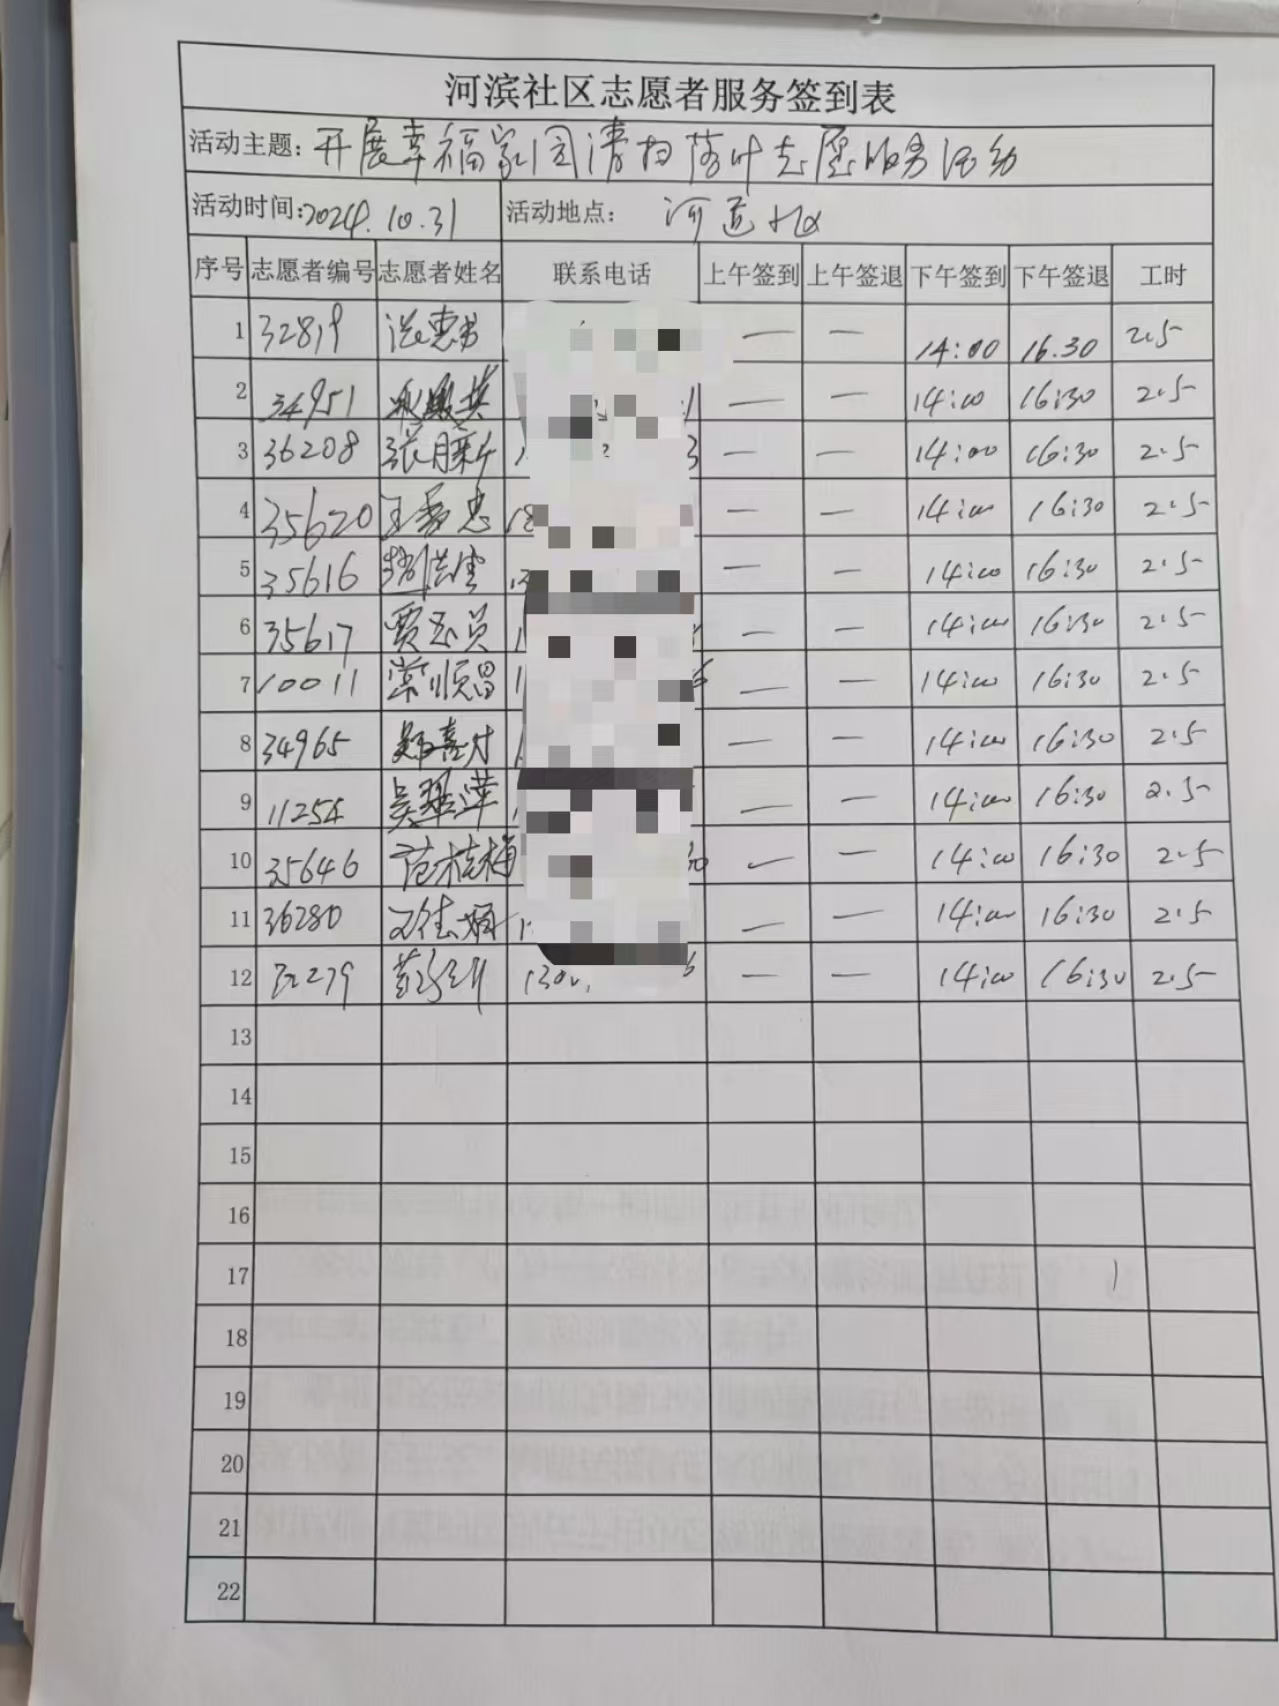 河滨社区志愿者服务签到表
活动主题: 开展幸福家园清扫落叶志愿服务活动
活动时间: 2024.10.31 活动地点: 河道
序号 志愿者编号 志愿者姓名 联系电话 上午签到 上午签退 下午签到 下午签退 工时
1 32819 — — 14:00 16.30 2.5
2 34951 — — 14:00 16:30 2.5
3 36208 张 — — 14:00 16:30 2.5
4 35620 王 忠 — — 14:00 16:30 2.5
5 35616 — — 14:00 16:30 2.5
6 35617 贾 员 — — 14:00 16:30 2.5
7 10011 常顺昌 — — 14:00 16:30 2.5
8 34965 — — 14:00 16:30 2.5
9 11254 吴翠萍 — — 14:00 16:30 2.5
10 35646 范桂梅 — — 14:00 16:30 2.5
11 36280 — — 14:00 16:30 2.5
12 — — 14:00 16:30 2.5
13
14
15
16
17
18
19
20
21
22